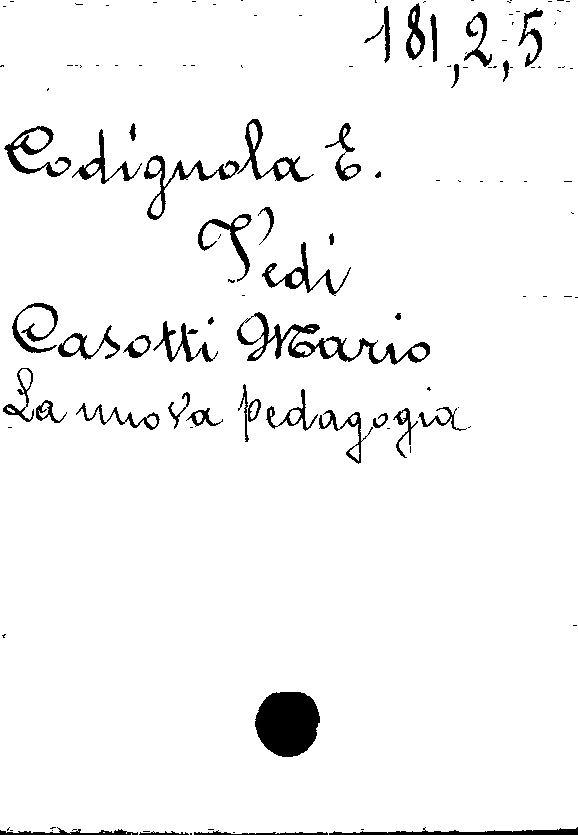 181,2,5
Codignola E.
Vedi
Casotti Mario
La nuova pedagogia